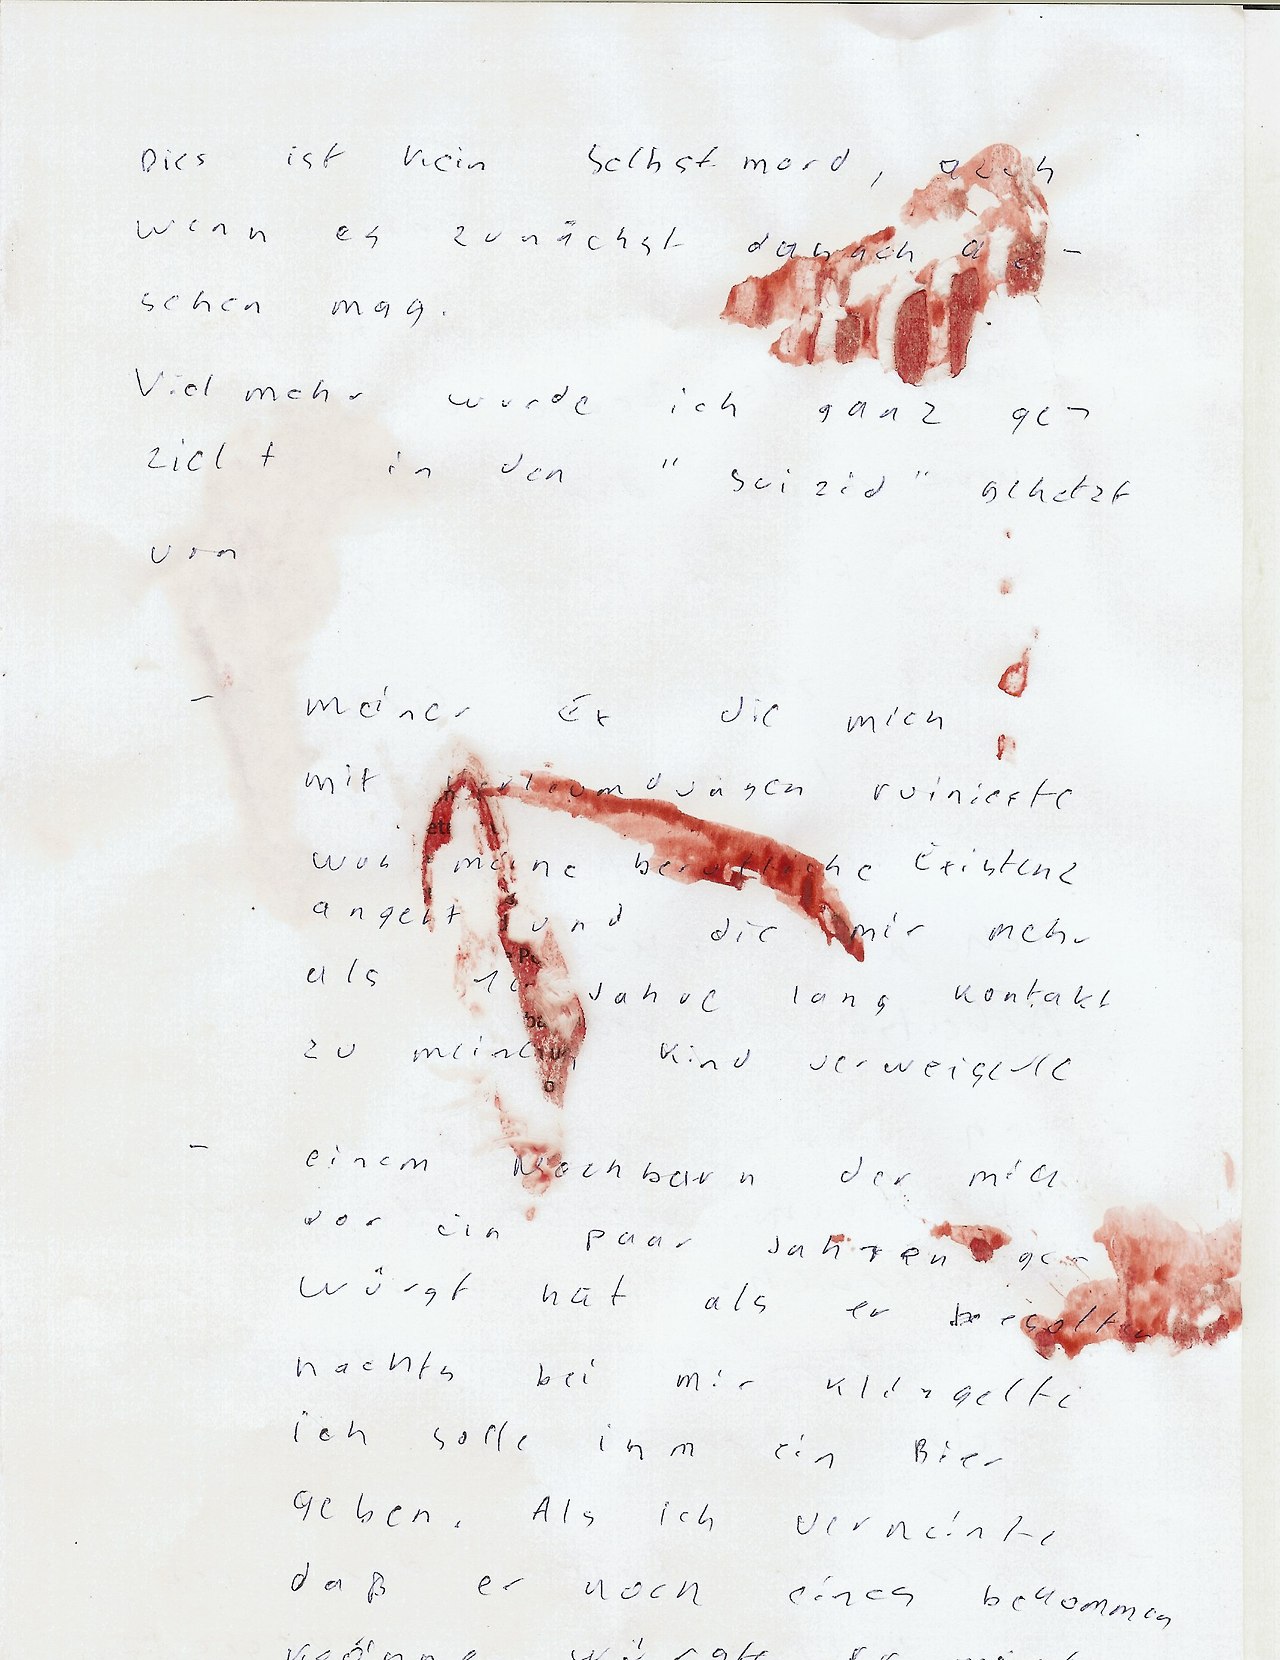 Dies ist kein Selbstmord, auch
wenn es zunächst danach aus-
sehen mag.
Vielmehr wurde ich ganz ge-
zielt in den "Suizid" gehetzt
von
- meiner Ex die mich
mit Verläumdungen ruinierte
was meine berufliche Existenz
angeht und die mir mehr
als Jahre lang Kontakt
zu meinem Kind verweigerte
- einem Nachbarn der mich
vor ein paar Jahren ge-
würgt hat als er besoffen
nachts bei mir klingelte
ich solle ihm ein Bier
geben. Als ich verneinte
daß er noch eines bekommen
könne würgte er mich